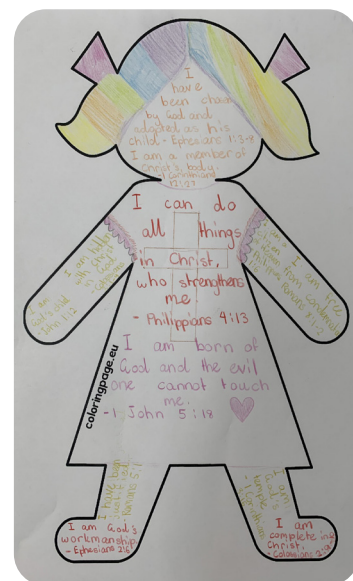 I
have
been chosen
by God and
adopted as his
child - Ephesians 1:3-8
I am a member of
Christ's body.
1 Corinthians
12:27
I can do
all things
in Christ,
who strengthens
me
- Philippians 4:13
I am born of
God and the evil
one cannot touch
me.
-1 John 5:18
I am
God's child
John 1:12
I am hidden
with Christ
in God
- Colossians
I am free
from condemnation
Romans 8:1-2
coloringpage.eu
I have been
justified
Romans 5:1
I am
God's
temple
- Corinthians
I am God's
workmanship.
- Ephesians 2:10
I am
complete in
Christ.
- Colossians 2:9-